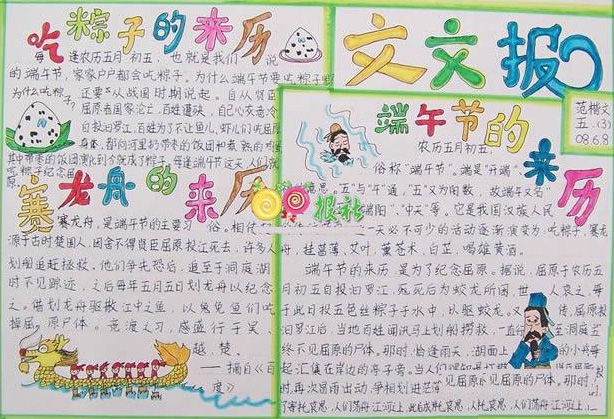 吃粽子的来历
每逢农历五月初五,也就是我们
说
的端午节,家家户户都会吃粽子。为什么端午节要吃粽子呢
为什么吃粽子?
还要从战国时期说起。
屈原看国家沦亡
自投汨罗江,百姓为了不让鱼、虾儿们吃屈原
身体,都向河里扔带枣的饭团和煮熟的鸡蛋
其中带枣的饭团演化到今就成了粽子。每逢端午节这天,人们就
吃粽子纪念屈原
赛龙舟的来历
赛龙舟,是端午节的主要习俗。相传
源于古时楚国人,因舍不得贤臣屈原投江死去,许多人
划船追赶拯救。他们争先恐后,追至洞庭湖
时不见踪迹,之后每年五月五日划龙舟以纪念
之。借划龙舟驱散江中之鱼,以免鱼们吃
掉屈原尸体。竞渡之习,盛行于吴、
越、楚。
——摘自《百
度》
文文报
范楷文
五.(3)
08.6.8
端午节的来历
农历五月初五,
俗称“端午节”。端是“开端”
“五”与“午”通,“五”又为阳数,故端午又名
端阳”、“中天”等。它是我国汉族人民
一天必不可少的活动逐渐演变为:吃粽子,赛龙
舟,挂菖蒲、艾叶,薰苍术、白芷,喝雄黄酒。
端午节的来历是为了纪念屈原。据说,屈原于农历五
月初五自投汨罗江,死死后为蛟龙所困,世人哀之,每
于此日投五色丝粽子于水中,以驱蛟龙。
屈原
投汨罗江后,当地百姓闻讯马上划船捞救,一直
至洞庭
终不见屈原的尸体。那时,恰逢雨天,湖面上
的小舟
起汇集在岸边的亭子旁。
见屈原不见屈原的尸体。那时,
时,再次冒雨出动,争相划进茫茫
了寄托哀思,人们荡舟江河之上,此
报社